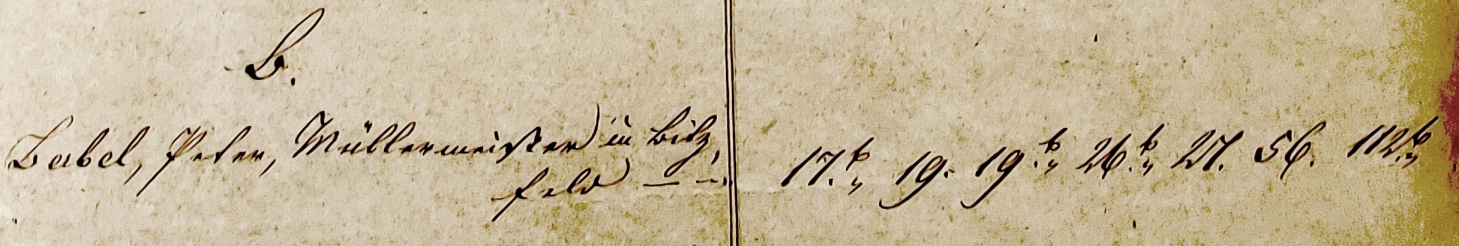 B.
Babel, Peter, Müllermeister in Bitz,
feld — — 17.b„ 19. 19.b„ 26.b„ 27. 56. 112.b„